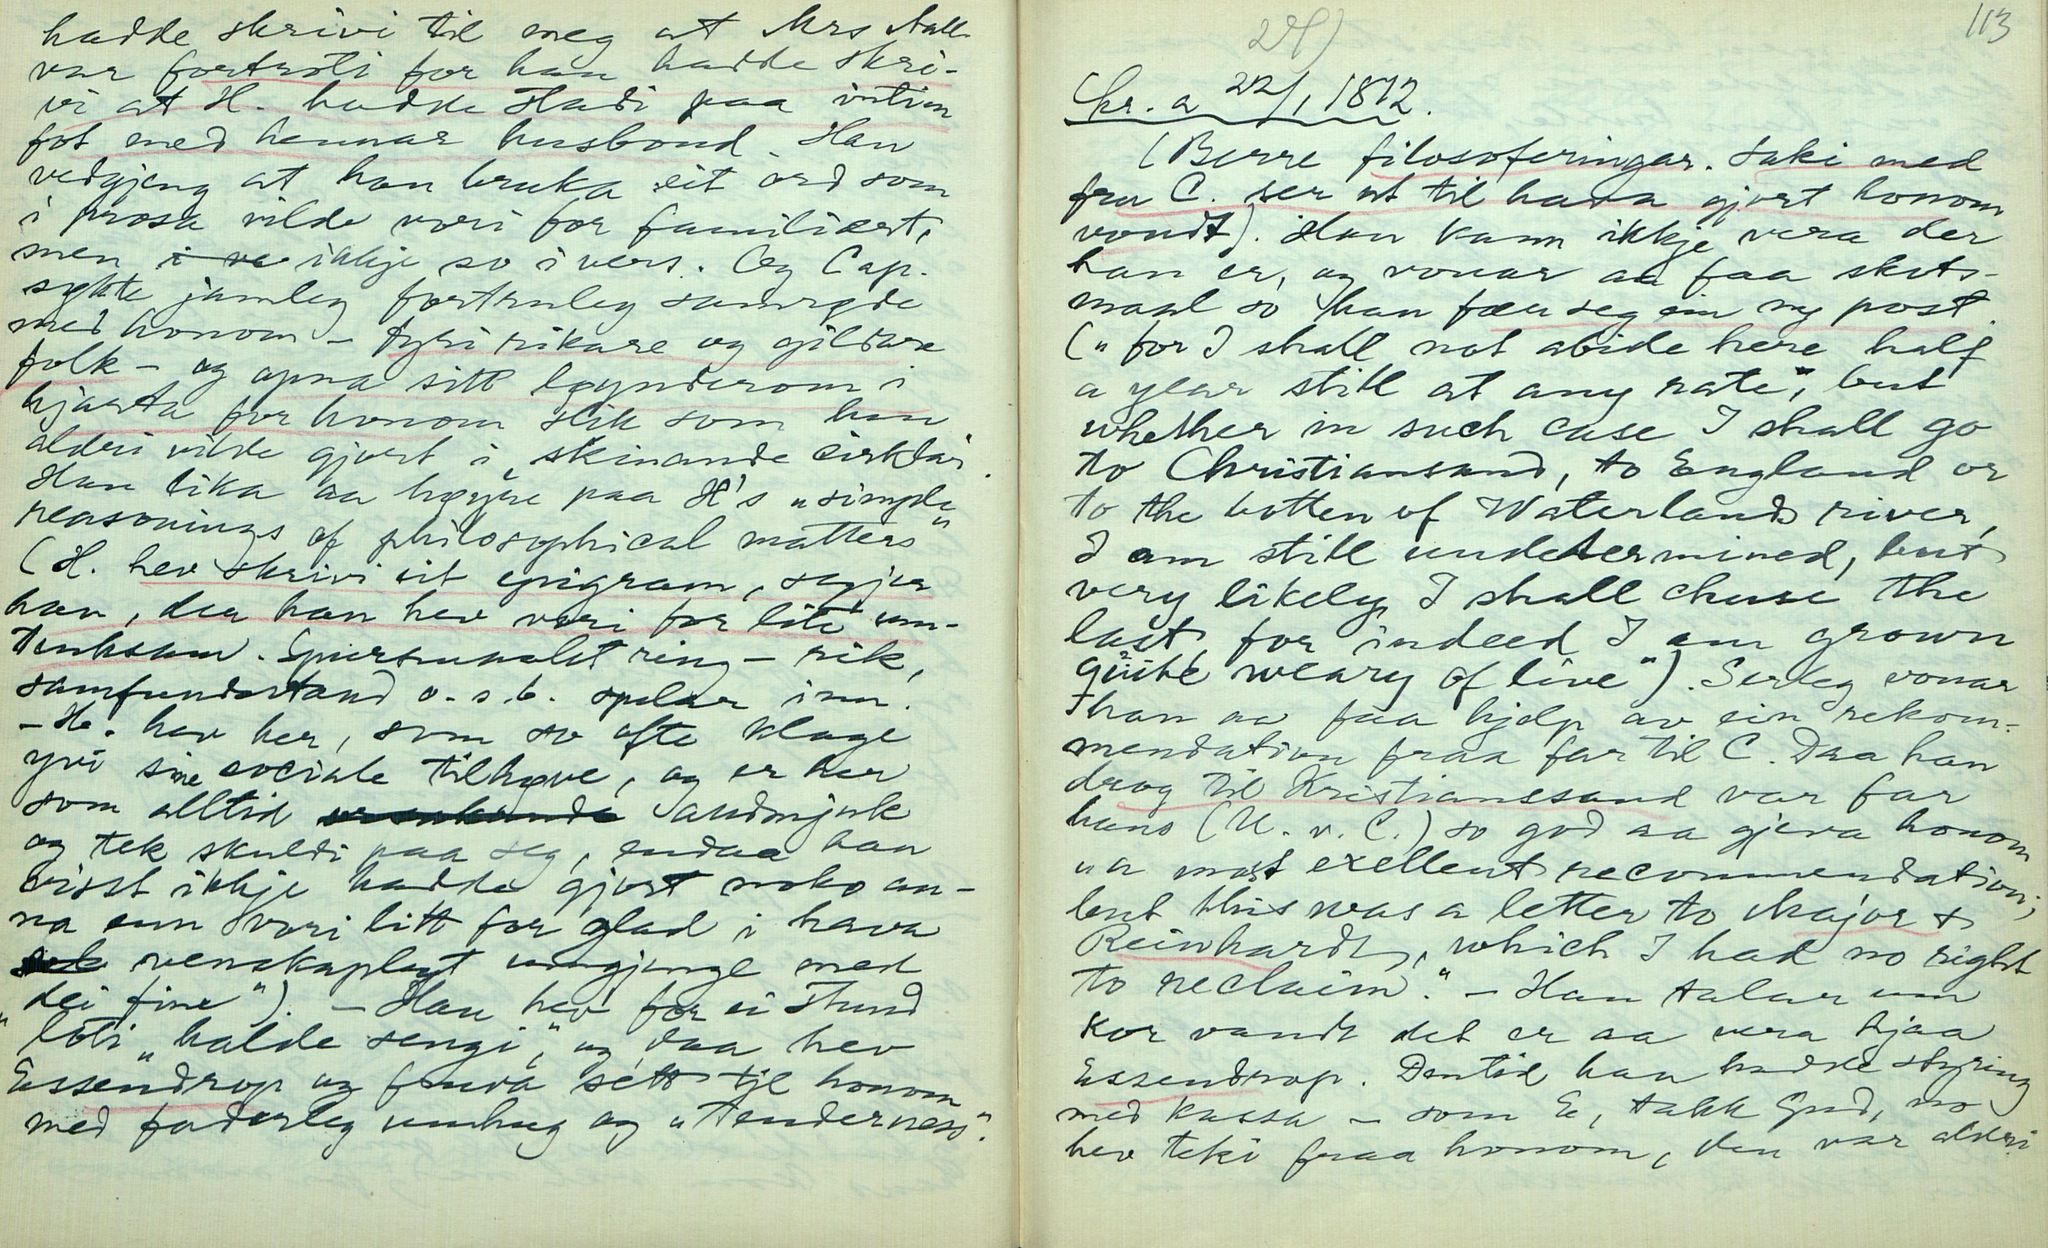 hadde skrivi til meg at Mrs Aall
var fortroti for han hadde skri-
vi at H. hadde stadi paa intim
fot med hennar husbond. Han
vedgjeng at han bruka eit ord som
i prosa vilde vori for familiært,
men i ve ikkje so i vers. Og Cap.
sykte jamleg fortruleg samrøde
med honom - fyri rikare og gildare
folk - og opna sitt løynderom i
hjarta for honom slik som han
aldri vilde gjort i "skinande cirklar".
Han lika aa høyre paa H's "simple
reasonings of philosophical matters"
(H. hev skrivi eit epigram, segjer
han, der han hev vori for lite um-
tenksam. Spursmaalet ring - rik,
samfundsstand o.s.b. spelar inn.
- H. hev her, som so ofte klage
yvi sine sociale tilhøve, og er her
som alltid audmjuk
og tek skuldi paa seg, endaa han
visst ikkje hadde gjort noko an-
na enn vori litt for glad i hava
venskaplegt umgjenge med
"dei fine"). - Han hev for ei stund
"loti "halde sengi", og daa hev
Essendrop og frua sett til honom
med faderleg umhug og "tenderness".
113
29)
Chr. a 22/1 1812.
(Berre filosoferingar. Saki med
fru C. ser ut til hava gjort honom
vondt). Han kann ikkje vera der
han er, og vonar aa faa skuts-
maal so han fær seg ein ny post.
("for I shall not abide here half
a year still at any rate", but
whether in such case I shall go
to Christiansand, to England or
to the botten of Waterlands river,
I am still undetermined, but
very likely I shall chuse the
last for indeed I am grown
quite weary of live"). Serleg vonar
han aa faa hjelp av ein rekom-
mendation fraa far til C. Daa han
drog til Kristianssand var far
hans (N. v. C.) so god aa gjeva honom
"a most exellent recommendation;
but this was a letter to Major v
Reinhardt, which I had no right
to reclaim." - Han talar um
kor vandt det er aa vera hjaa
Essendrop. Dentid han hadde styring
med kassa - som E, takk Gud, no
hev teki fraa honom, den var aldri